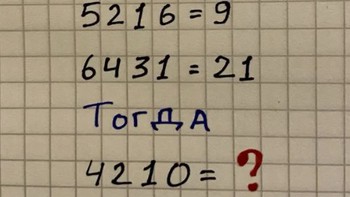 5216 = 9
6431 = 21
Тогда
4210 = ?